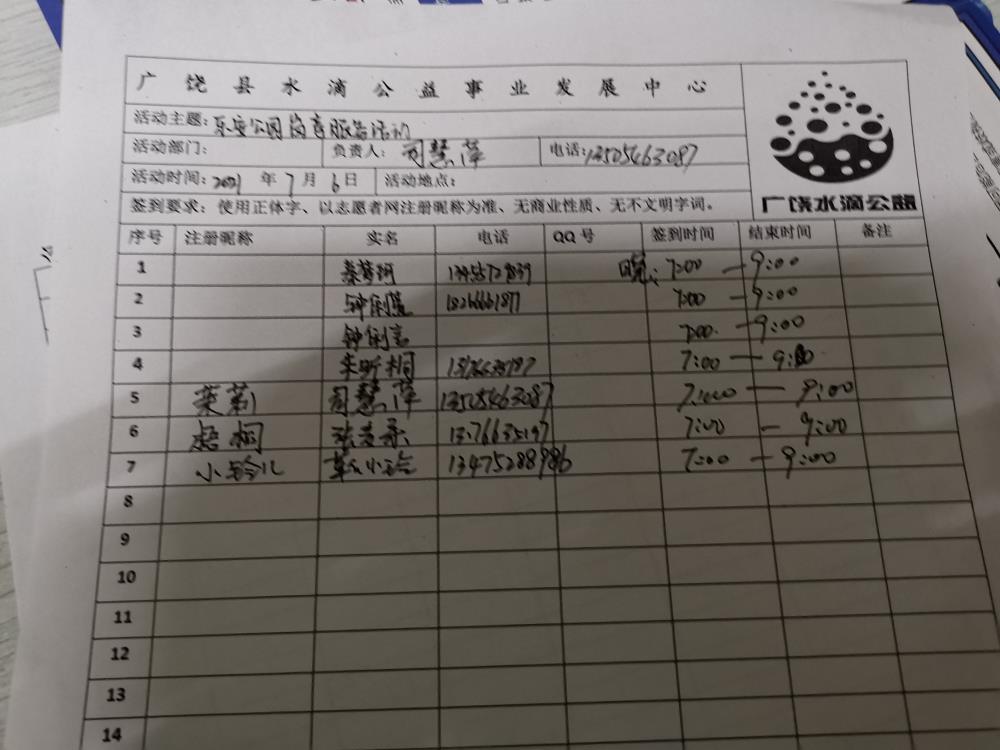 广饶县水滴公益事业发展中心
活动主题：乐安公园岗亭服务活动
活动部门： 负责人：司慧萍 电话：13505463087
活动时间：2021年7月6日 活动地点：
签到要求：使用正体字、以志愿者网注册昵称为准、无商业性质、无不文明字词。
广饶水滴公益
序号 注册昵称 实名 电话 QQ号 签到时间 结束时间 备注
1 晚：7:00 — 9:00
2 7:00 — 9:00
3 7:00 — 9:00
4 朱昕桐 7:00 — 9:00
5 茉莉 司慧萍 13505463087 7:00 — 9:00
6 梧桐 7:00 — 9:00
7 小玲儿 13475288986 7:00 — 9:00
8
9
10
11
12
13
14